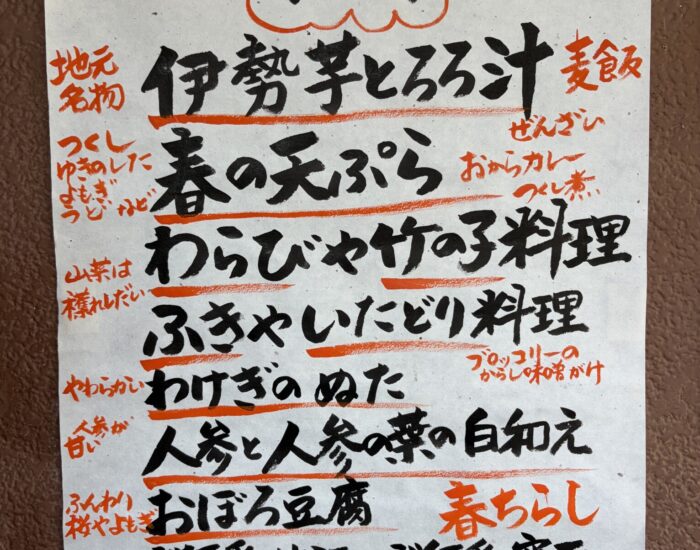 地元
名物
伊勢芋とろろ汁
麦飯
ぜんざい
つくし
ゆきのした
よもぎ
うど など
春の天ぷら
おからカレー
つくし煮
わらびや竹の子料理
山菜は
穫れしだい
ふきやいたどり料理
ブロッコリーの
からし味噌がけ
やわらかい
わけぎのぬた
人参が
甘い
人参と人参の葉の白和え
ふんわり
桜やよもぎ
おぼろ豆腐
春ちらし